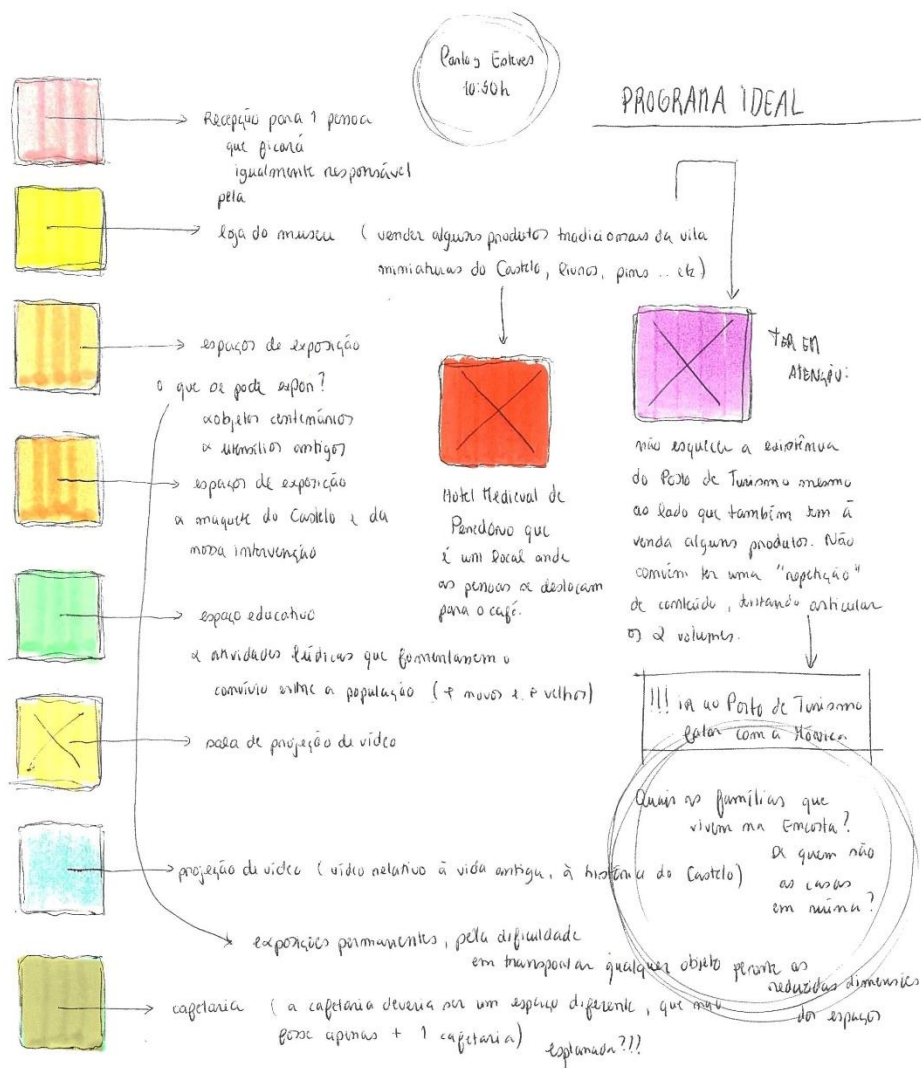 Carlos Esteves
10:50h
PROGRAMA IDEAL
Recepção para 1 pessoa
que ficará
igualmente responsável
pela
loja do museu (vender alguns produtos tradicionais da vila
miniaturas do Castelo, livros, pins .. etc)
espaços de exposição
o que se pode expor?
objetos centenários
utensílios antigos
espaços de exposição
a maquete do Castelo e da
nossa intervenção
espaço educativo
atividades lúdicas que fomentassem o
convívio entre a população (+ novos e + velhos)
sala de projeção de vídeo
projeção de vídeo (vídeo relativo à vida antiga, à história do Castelo)
exposições permanentes, pela dificuldade
em transportar qualquer objeto perante as
reduzidas dimensões
dos espaços
cafetaria (a cafetaria deveria ser um espaço diferente, que não
fosse apenas + 1 cafetaria)
esplanada???
Hotel Medieval de
Penedono que
é um local onde
as pessoas se deslocam
para o café.
TER EM
ATENÇÃO:
não esquecer a existência
do Posto de Turismo mesmo
ao lado que também tem à
venda alguns produtos. Não
convém ter uma "repetição"
de conteúdo, tentando articular
os 2 volumes.
!!! ir ao Posto de Turismo
falar com a Mónica
Quais as famílias que
vivem na Encosta?
De quem são
as casas
em ruína?